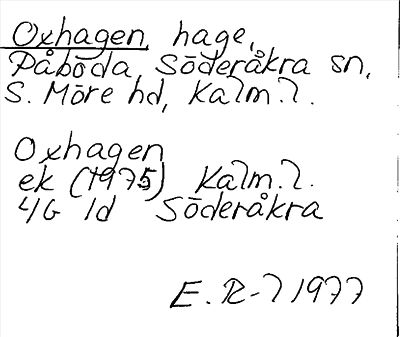 Oxhagen, hage,
Påboda, Söderåkra sn,
S. Möre hd, Kalm. l.
Oxhagen
ek (1975) Kalm. l.
4G 1d Söderåkra
E. R-l 1977